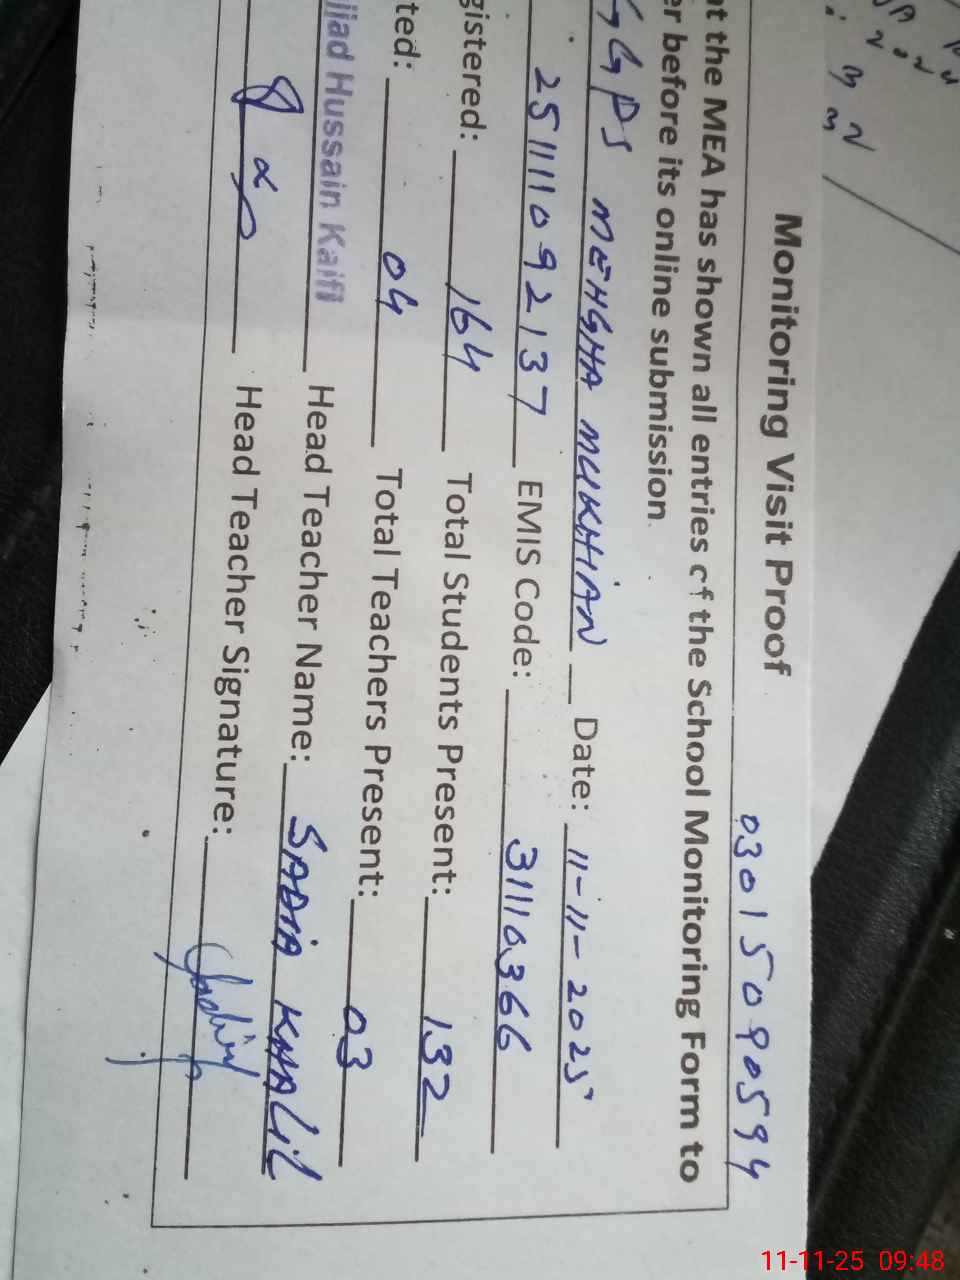 Monitoring Visit Proof
03015090594
at the MEA has shown all entries of the School Monitoring Form to
er before its online submission
GGPS MEHGHA MUKHIAN Date: 11-11-2025
25111092137 EMIS Code: 31110366
gistered: 164 Total Students Present: 132
ted: 04 Total Teachers Present: 03
jjad Hussain Kaifi Head Teacher Name: SADIA KHALIL
Head Teacher Signature:
11-11-25 09:48